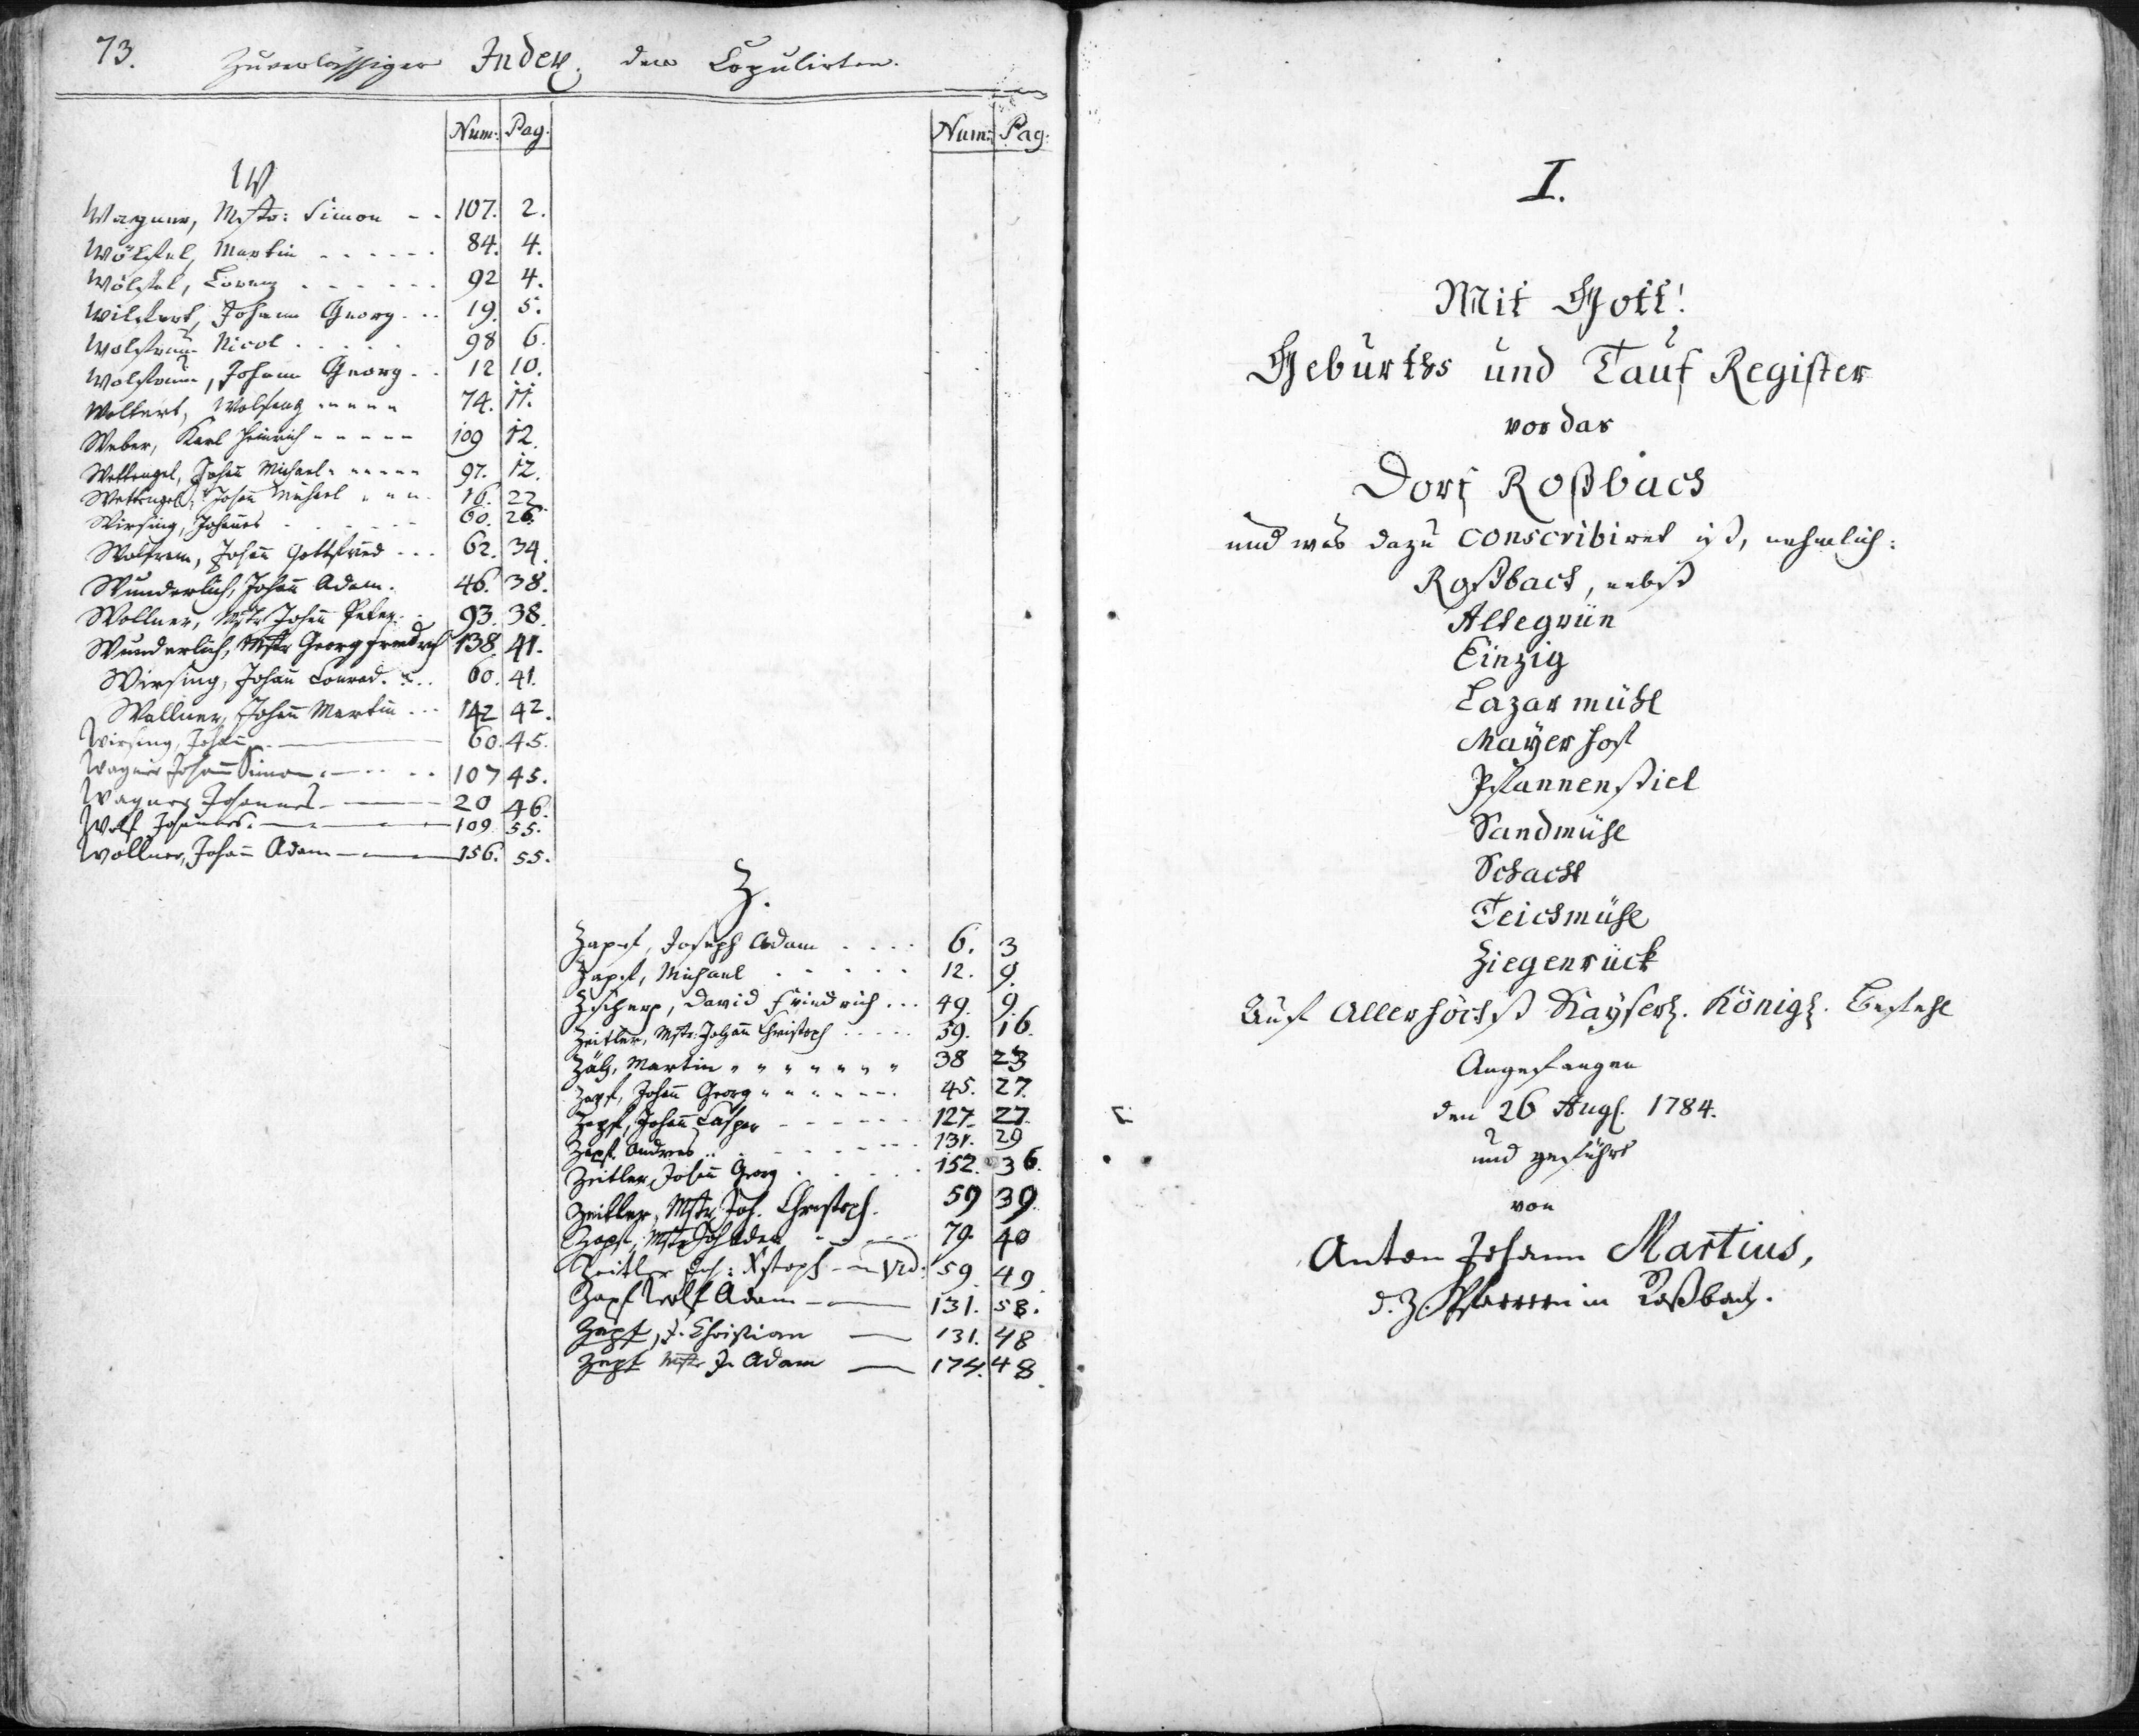 73. Zuverlässiger Index. der Copulirten.
Num: Pag.
W
Wagner, Mstr: Simon - - 107. 2.
Wölfel, Martin - - - - - 84. 4.
Wölfel, Lorenz - - - - - - 92 4.
Johann Georg - - 19. 5.
Wolfrum Nicol - - - - - 98 6.
Wolfrum, Johann Georg - - 12 10.
74. 11.
Weber, Karl Heinrich - - - - - 109 12.
Wettengel, Johañ Michael - - - - - 97. 12.
Wettengel, Johañ Michael - - - 16. 22.
Wirsing, Johannes - - - - - 60. 26.
Wolfrum, Johañ Gottfried - - - 62. 34.
Wunderlich, Johañ Adam. 46. 38.
Wollner, Mstr Johañ Peter. - 93. 38.
Wunderlich, Mstr Georg Friedrich 138. 41.
Wirsing, Johañ Conrad. - - 60. 41.
Wallner, Johañ Martin - - - 142 42.
Wirsing, Johañ 60. 45.
Wagner Johann Simon - - - 107 45.
Wagner Johannes - 20 46.
Wolf Johannes. 109. 55.
Wollner, Johañ Adam 156. 55.
Num: Pag:
Z.
Zapf, Joseph Adam - - - - 6. 3
Zapf, Michael - - - - - 12. 9.
Zscherp, David Friedrich - - - 49. 9.
Zeitler, Mstr. Johann Christoph - - - - - 59. 16.
Martin " " " " " " " 38 23
Zapf, Johañ Georg " " " " " " 45. 27.
Zapf, Johañ Casper - - - - - - 127. 27.
Zapf. Andreas - - - - - - - 131. 29
Zeitler, Johañ Georg - - - - - 152. 36.
Zeitler, Mstr, Joh. Christoph. 59 39.
Zapf, Mstr Joh Adam - - - 79. 40
Zeitler Joh: Xstoph - Vid: 59 49
Zapf Wolf Adam 131. 58.
Zapf, J. Christian 131. 48
Zapf Mstr J. Adam 174. 48.
I.
Mit Gott!
Geburths und Tauf Register
vor das
Dorf Roßbach
und was dazu conscribiret ist, nehmlich:
Roßbach, nebst
Altegrün
Einzig
Lazarmühl
Mayerhof
Pfannenstiel
Sandmühl
Schacht
Teichmühl
Ziegenrück
Auf Allerhöchst Kayserl. Königl. Befehl
Angefangen
den 26 Augl. 1784.
und geführt
von
Anton Johann Martius,
d. Z. Pfarrern in Roßbach.